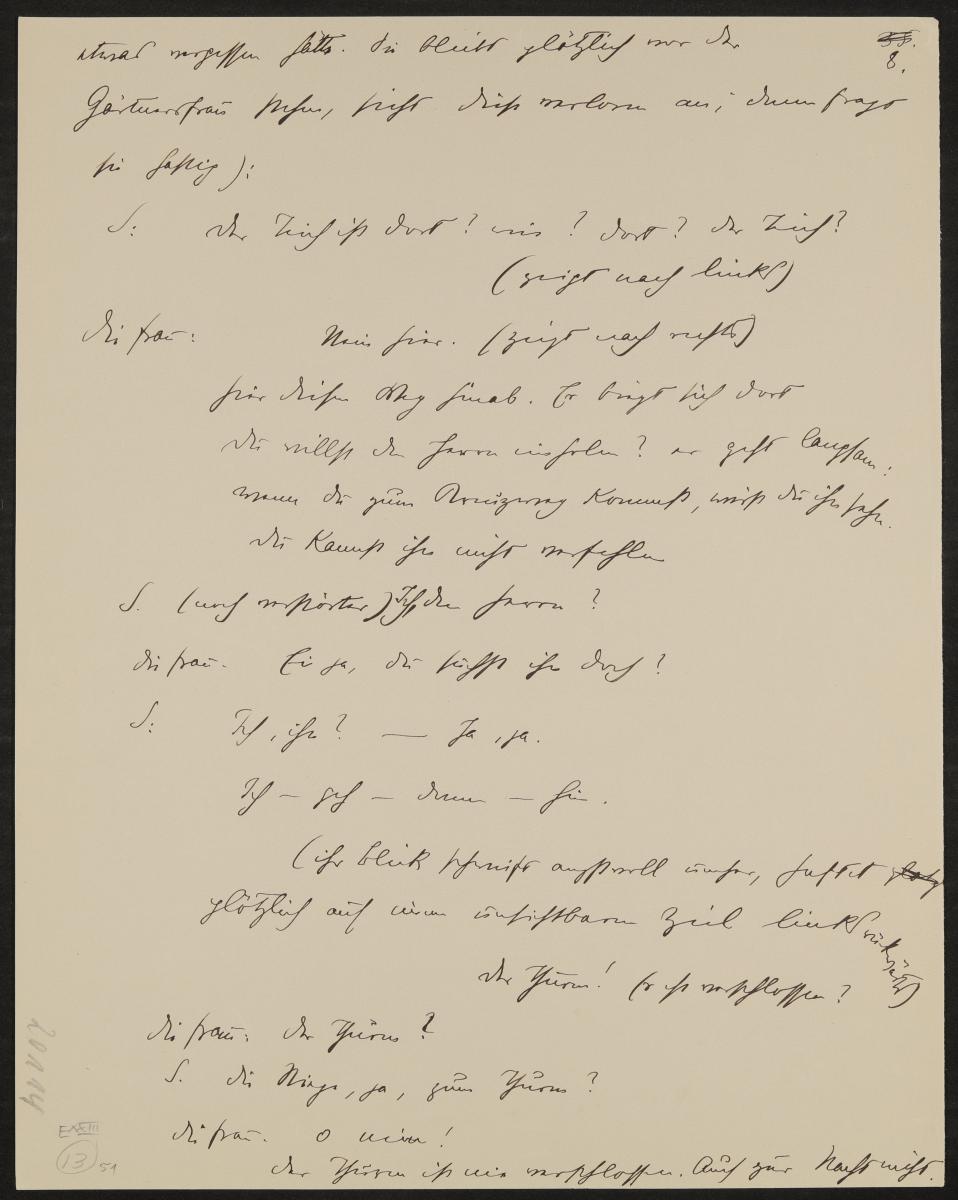 etwas vergessen hätte. Sie bleibt plötzlich vor der
8.
Gärtnersfrau stehen, sieht diese verloren an; dann fragt
sie hastig):
S: Der Teich ist dort? wie? dort? der Teich?
(zeigt nach links)
die Frau: Nein hier. (zeigt nach rechts)
hier diesen Weg hinab. Er biegt sich dort
du willst den Herrn einholen? er geht langsam:
wenn du zum Kreuzweg kommst, wirst du ihn sehn.
du kannst ihn nicht verfehlen
S. (noch verstörter) Ich, den Herrn?
die Frau. Ei ja, du suchst ihn doch?
S: Ich, ihn? — Ja, ja.
Ich — geh — dann — hin.
(ihr Blick schweift angstvoll umher, haftet
plötzlich auf einem unsichtbaren Ziel links rückwärts)
der Thurm! Er ist verschlossen?
die Frau: der Thurm?
S. die Stiege, ja, zum Thurm?
die Frau. o nein!
der Thurm ist nie verschlossen. Auch zur Nacht nicht.
20114
EXXIII
13 51